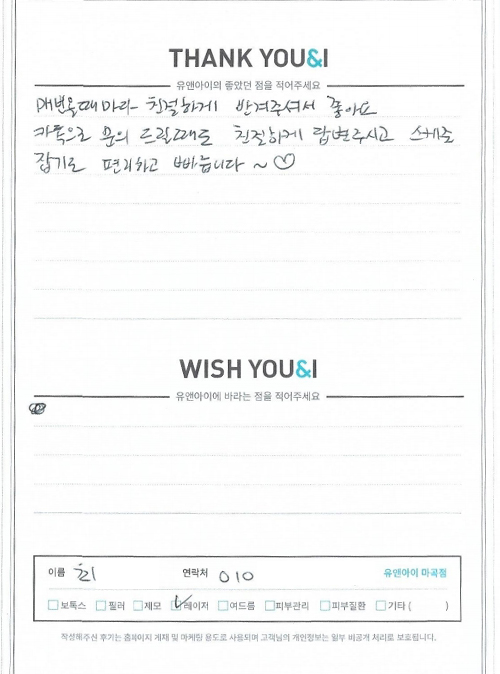 THANK YOU&I
유앤아이의 좋았던 점을 적어주세요
매번올때마다 친절하게 반겨주셔서 좋아요
카톡으로 문의 드릴때도 친절하게 답변주시고 스케줄
잡기도 편리하고 빠릅니다 ~ ♡
WISH YOU&I
유앤아이에 바라는 점을 적어주세요
이름 최 연락처 010 유앤아이 마곡점
보톡스 필러 제모 레이저 여드름 피부관리 피부질환 기타 ( )
작성해주신 후기는 홈페이지 게재 및 마케팅 용도로 사용되며 고객님의 개인정보는 일부 비공개 처리로 보호됩니다.